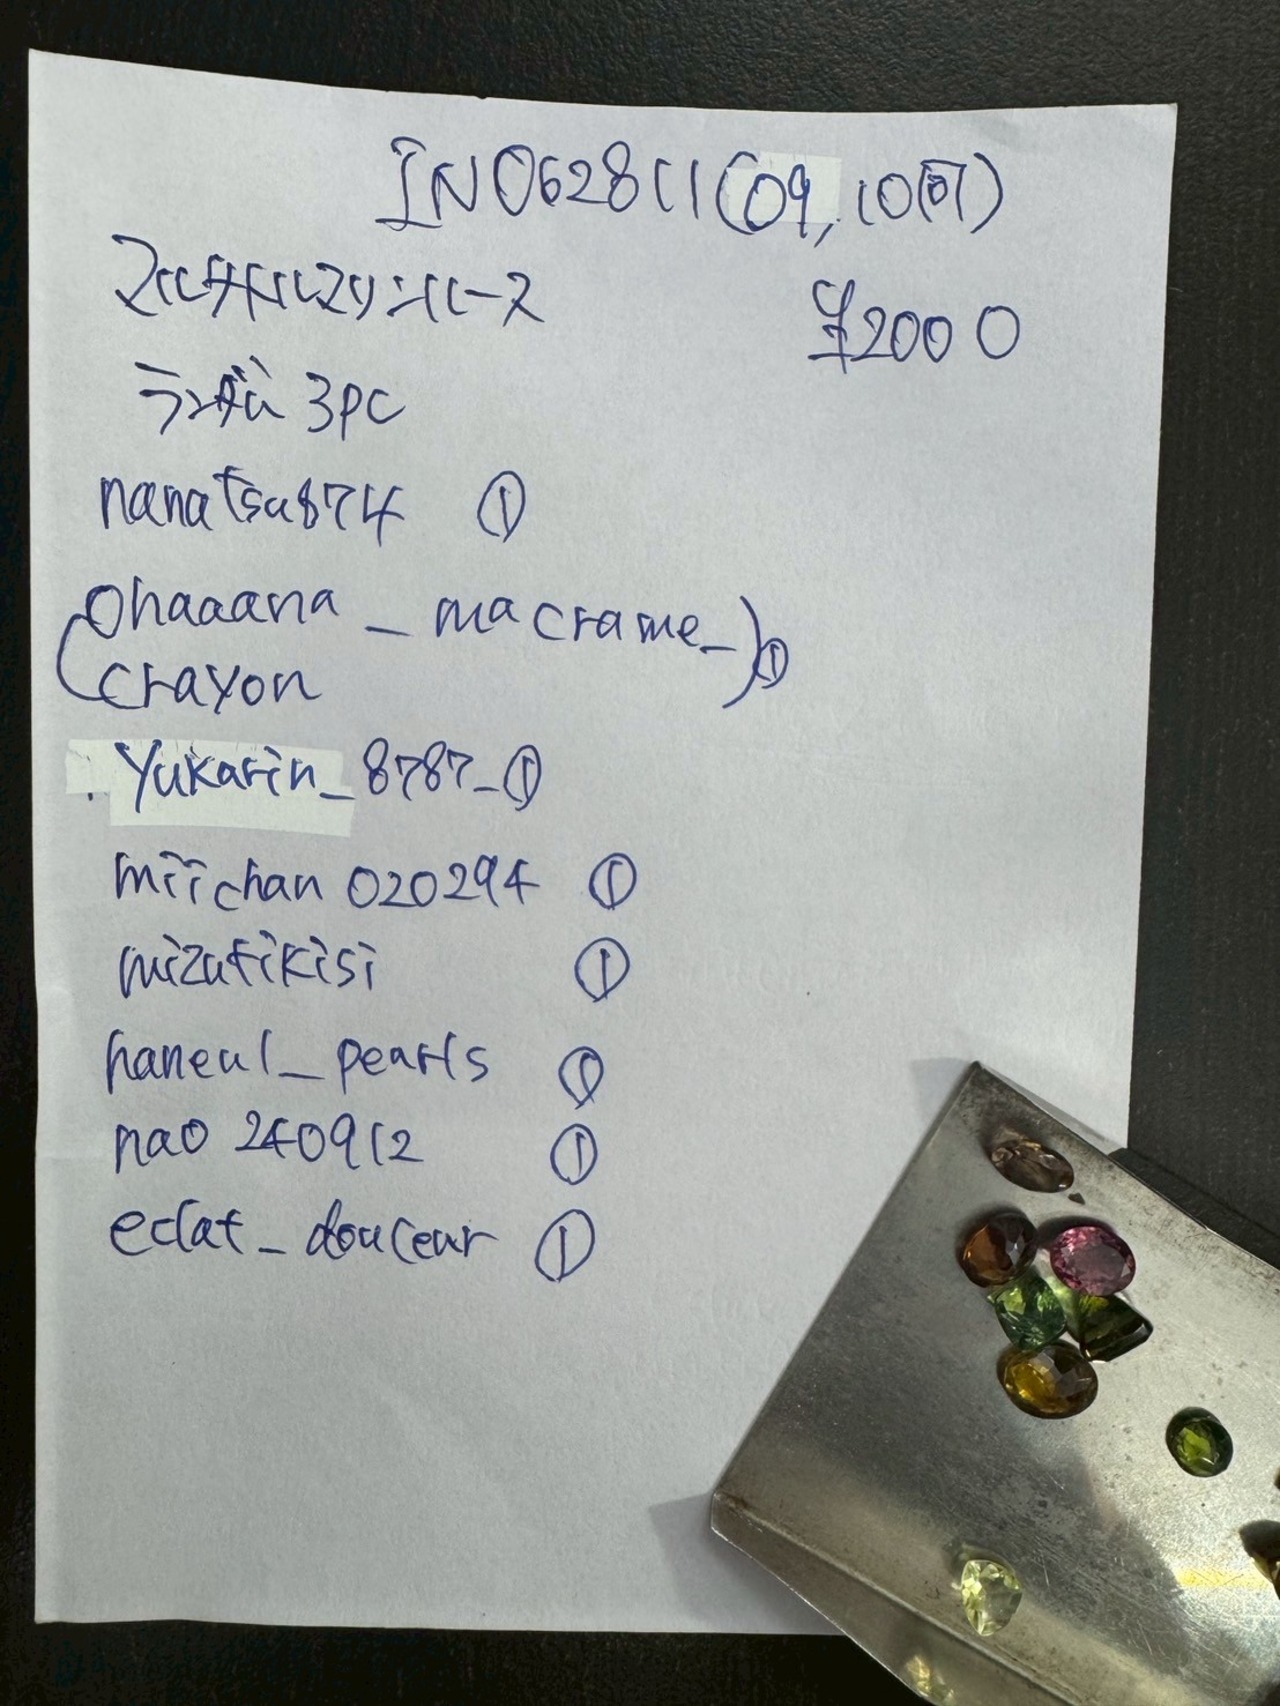 IN062811(09,10同)
マルチトルマリンルース
¥2000
ランダム 3pc
nanatsu874 ①
(ohaaana_macrame_)①
crayon
yukarin_8787_①
miichan020294 ①
mizutikisi ①
haneul_pearls ①
nao240912 ①
eclat_douceur ①